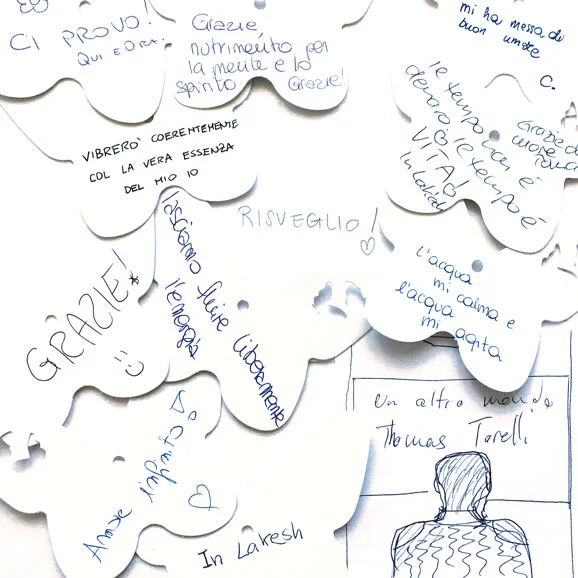 CI PROVO!
QUI E ORA.
Grazie,
nutrimento per
la mente e lo
spirito
Grazie!
mi ha messa di
buon umore
C.
VIBRERO' COERENTEMENTE
COL LA VERA ESSENZA
DEL MIO IO
Il tempo non è
denaro il tempo è
VITA!
In Lakech
Grazie di
cuore
RISVEGLIO!
GRAZIE!
lasciamo fluire liberamente
l'energia
L'acqua
mi calma e
l'acqua
mi agita
un altro mondo
Thomas Torelli
Amore infinito
In Lakesh